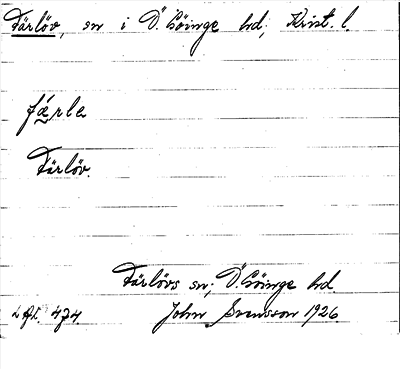 Färlöv, sn i Ö. Göinge hd, Krist. l.
fǽrle
Färlöv.
Färlövs sn, Ö. Göinge hd.
474. John Svensson 1926